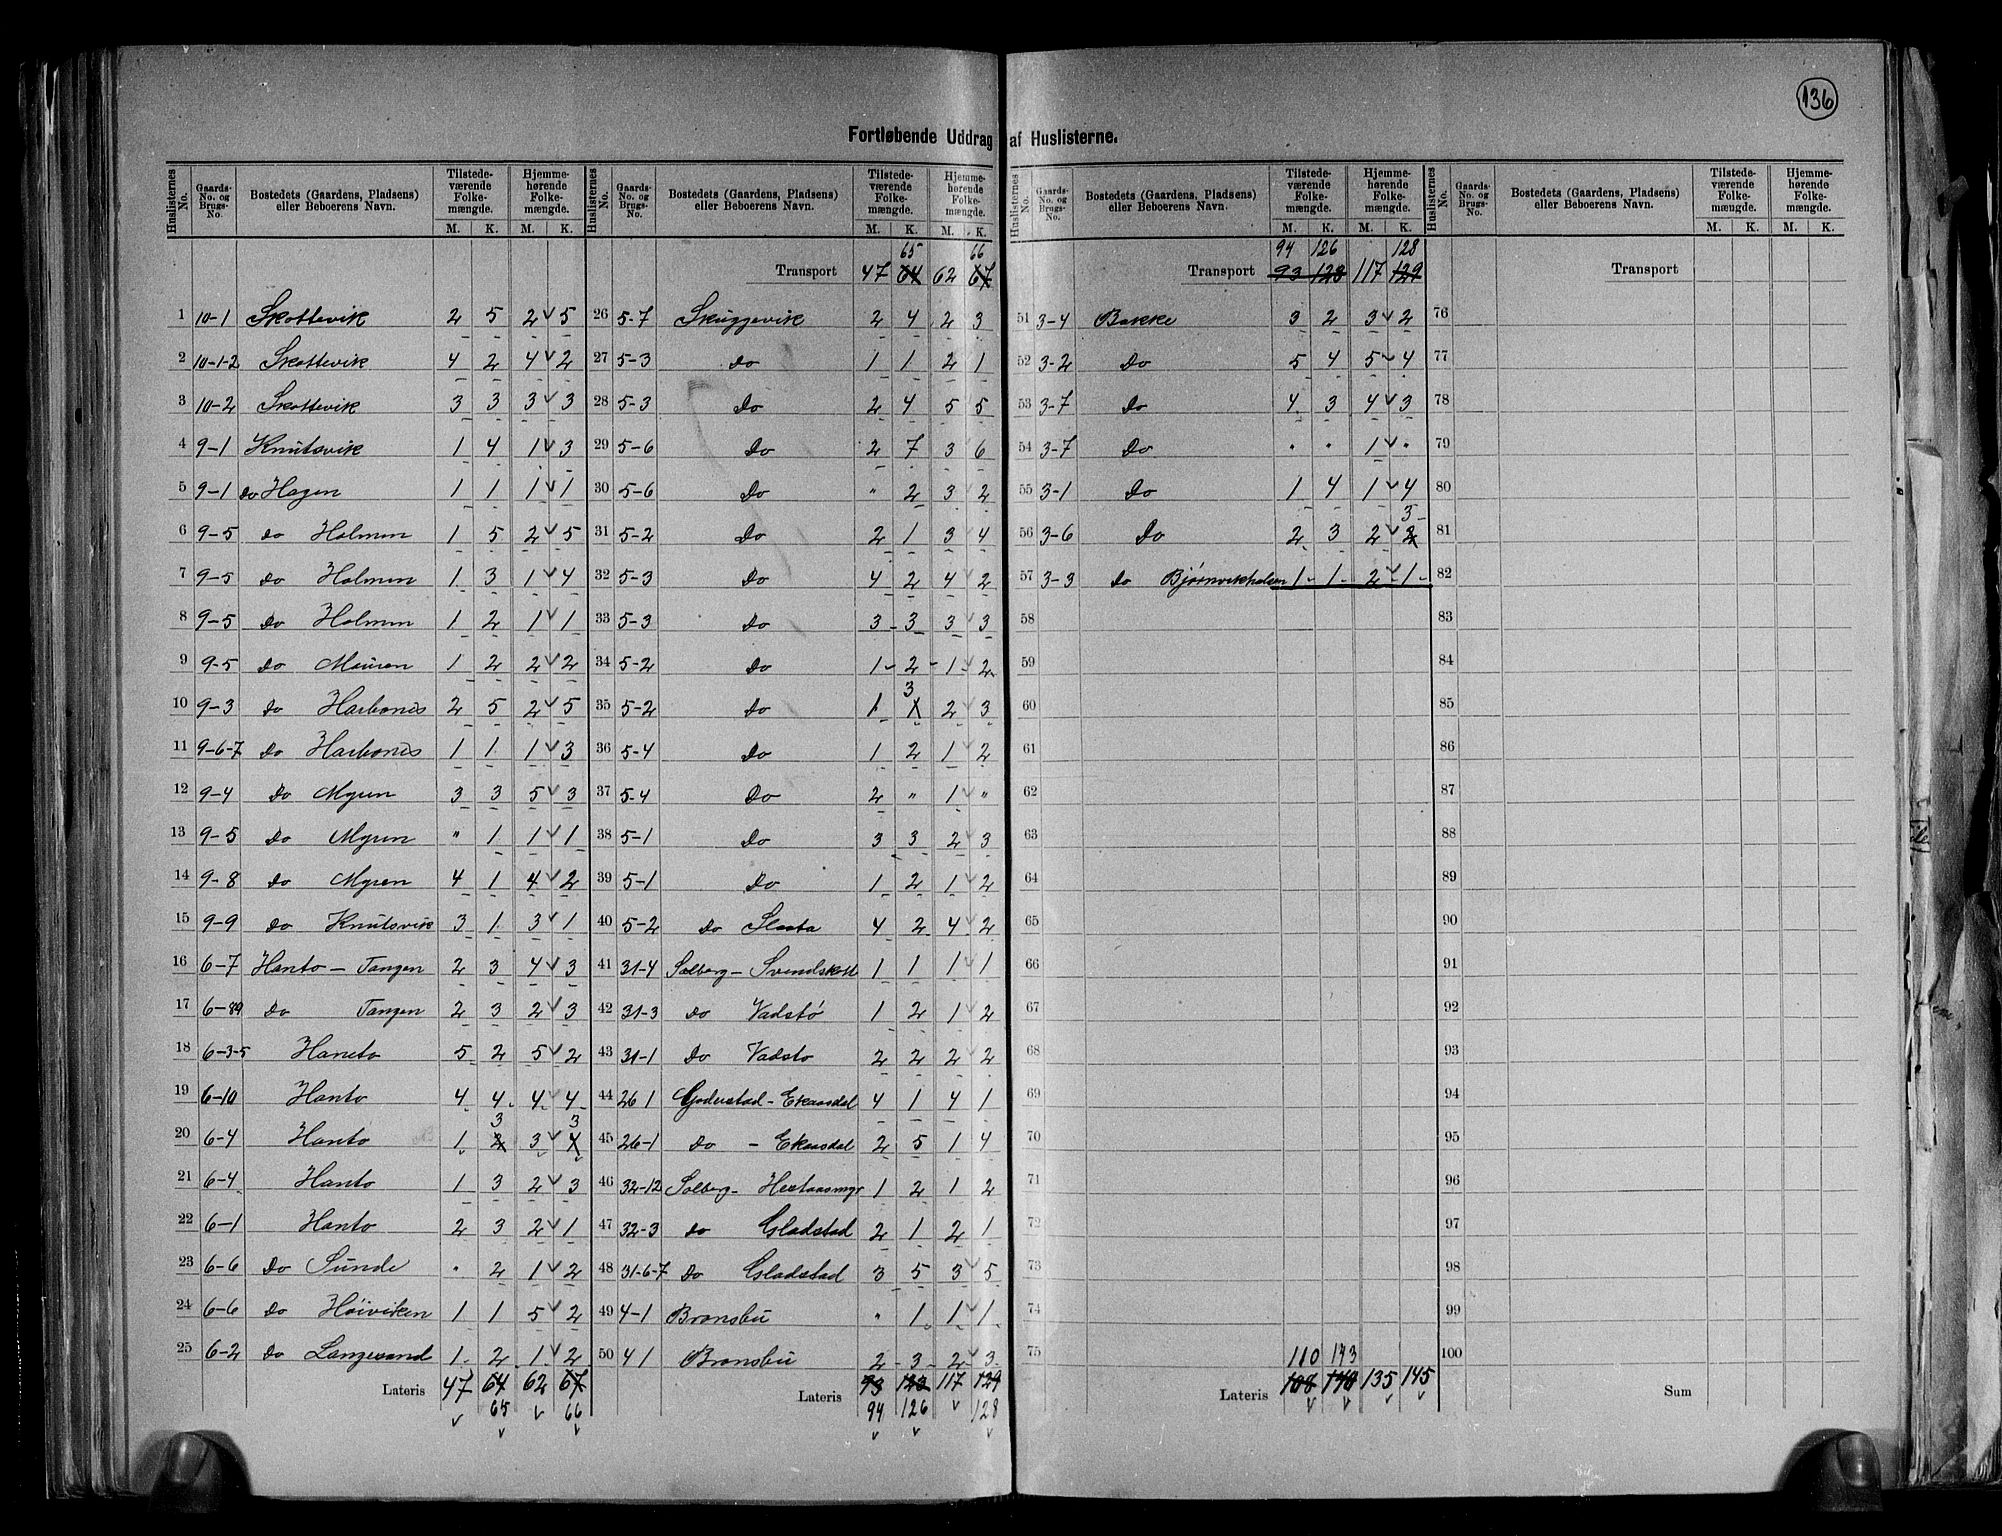 136
Fortløbende Uddrag af Huslisterne.
Huslisternes No. Gaards-No. og Brugs-No. Bostedets (Gaardens, Pladsens) eller Beboerens Navn. Tilstedeværende Folkemængde. Hjemmehørende Folkemængde. M. K. M. K.
Huslisternes No. Gaards-No. og Brugs-No. Bostedets (Gaardens, Pladsens) eller Beboerens Navn. Tilstedeværende Folkemængde. Hjemmehørende Folkemængde. M. K. M. K.
Huslisternes No. Gaards-No. og Brugs-No. Bostedets (Gaardens, Pladsens) eller Beboerens Navn. Tilstedeværende Folkemængde. Hjemmehørende Folkemængde. M. K. M. K.
Huslisternes No. Gaards-No. og Brugs-No. Bostedets (Gaardens, Pladsens) eller Beboerens Navn. Tilstedeværende Folkemængde. Hjemmehørende Folkemængde. M. K. M. K.
1 10-1 Skottevik 2 5 2 5
2 10-1-2 Skottevik 4 2 4 2
3 10-2 Skottevik 3 3 3 3
4 9-1 Knutsvik 1 4 1 3
5 9-1 do Hagen 1 1 1 1
6 9-5 do Holmen 1 5 2 5
7 9-5 do Holmen 1 3 1 4
8 9-5 do Holmen 1 2 1 1
9 9-5 do Mauren 1 2 2 2
10 9-3 do Harbonis 2 5 2 5
11 9-6-7 do Harbonis 1 1 1 3
12 9-4 Do Myren 3 3 5 3
13 9-5 do Myren " 1 1 1
14 9-8 do Myren 4 1 4 2
15 9-9 do Knutsvik 3 1 3 1
16 6-7 Hanto - Tangen 2 3 4 3
17 6-89 Do Tangen 2 3 2 3
18 6-3-5 Hanto 5 2 5 2
19 6-10 Hanto 4 4 4 4
20 6-4 Hanto 1 3 3 3
21 6-4 Hanto 1 3 2 3
22 6-1 Hanto 2 3 2 1
23 6-6 Do Sunde " 2 1 2
24 6-6 Do Höiviken 1 1 5 2
25 6-2 Do Langesand 1 2 1 2
Lateris 47 64 62 67
65 66
65 66
Transport 47 64 62 67
26 5-7 Skuggevik 2 4 2 3
27 5-3 Do 1 1 2 1
28 5-3 Do 2 4 5 5
29 5-6 Do 2 7 3 6
30 5-6 Do " 2 3 2
31 5-2 Do 2 1 3 4
32 5-3 Do 4 2 4 2
33 5-3 Do 3 3 3 3
34 5-2 Do 1 2 1 2
35 5-2 Do 1 3 2 3
36 5-4 Do 1 2 1 2
37 5-4 Do 2 " 1 "
38 5-1 Do 3 3 2 3
39 5-1 Do 1 2 1 2
40 5-2 Do Slaata 4 2 4 2
41 31-4 Solberg - 1 1 1 1
42 31-3 Do Vadstø 1 2 1 2
43 31-1 Do Vadsto 2 2 2 2
44 26 1 Goderstad - Ekaasdal 4 1 4 1
45 26-1 Do - Ekaasdal 2 5 1 4
46 32-12 Solberg - Hestaasmyr 1 2 1 2
47 32-3 do Gladstad 2 1 2 1
48 31-6-7 Do Gladstad 3 5 3 5
49 4-1 Bronsbu " 1 1 1
50 4 1 Bronsbu 2 3 2 3
Lateris 93 123 117 129
94 126 128
94 126 128
Transport 93 123 117 129
51 3-4 Bakke 3 2 3 2
52 3-2 Do 5 4 5 4
53 3-7 Do 4 3 4 3
54 3-7 Do " " 1 "
55 3-1 Do 1 4 1 4
3
56 3-6 Do 2 3 2 2
57 3-3 do Bjørnvikholmen 1 1 2 1
58
59
60
61
62
63
64
65
66
67
68
69
70
71
72
73
74
75
110 143
Lateris 108 140 135 145
Transport
76
77
78
79
80
81
82
83
84
85
86
87
88
89
90
91
92
93
94
95
96
97
98
99
100
Sum